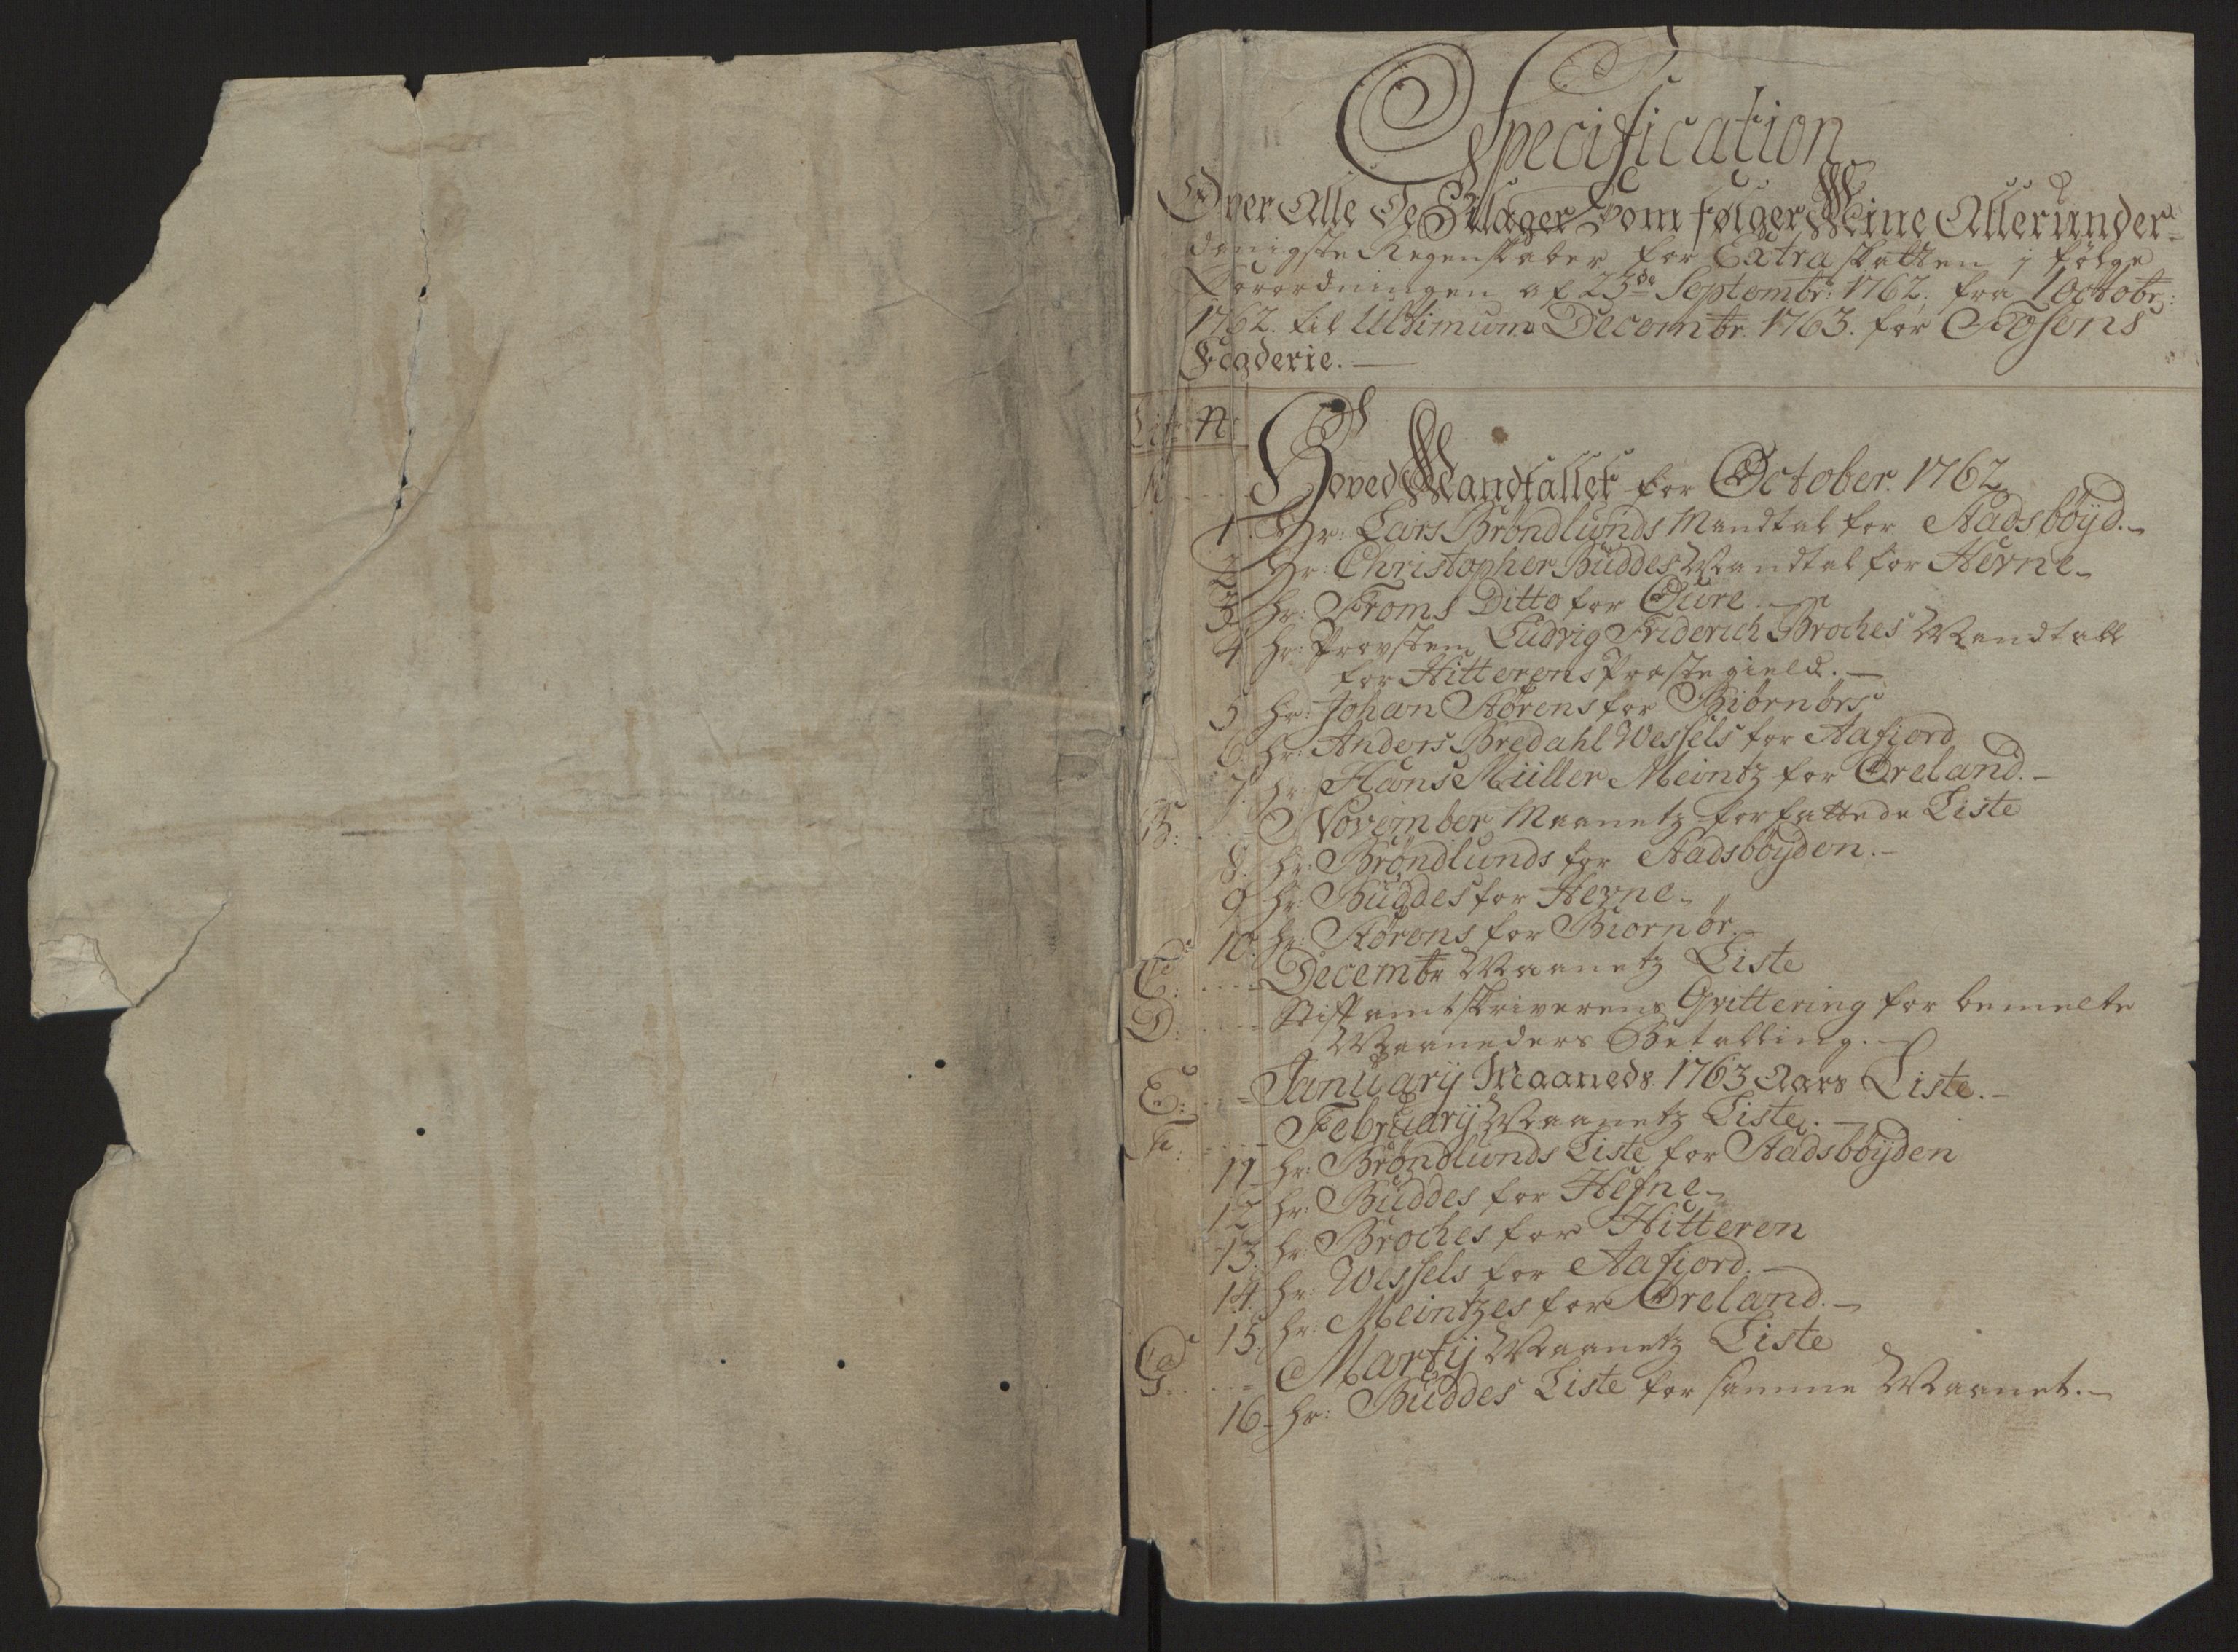 Specification
Over Alle De Bilager Som følger Mine Allerunder-
danigste Regenskaber for Extra skatten i følge
Forordningen af 23de Septembr: 1762. fra 1 Octobr:
1762. til Ultimum Decembr. 1763. for Fosens
Fogderie. —
Litr: N:
A. Hoved Mandtallet for October. 1762.
1. Hr: Lars Bröndlunds Mandtal for Stadsböyd. -
2. Hr: Christopher Buddes Mandtal for Hevne -
3. Hr: Froms Ditto for Öure. —
4. Hr: Provsten Ludvig Friderich Broches Mandtall
for Hitterens Præstegield. —
5. Hr: Johan Sörens for Biörnörs
6. Hr: Anders Bredahl Wessels for Aafiord
7. Hr: Hans Müller Meintz for Öreland. -
B: November Maanetz forfattede Liste
8. Hr: Bröndlunds for Stadsböyden. -
9 Hr: Buddes for Hevne -
10. Hr: Sörens for Biornör. -
C: Decembr Maanetz Liste
D: Stiftamtskriverens Qvittering for bemelte
Maaneders Betalling. -
E: January Maaneds 1763 Aars Liste. -
F: February Maanetz Liste. —
11 - Hr: Bröndlunds Liste for Stadsböyden
12 Hr: Buddes for Hefne -
13. Hr: Broches for Hitteren
14. Hr: Wessels for Aafiord. —
15. Hr: Meintzes for Öreland. -
G. Marty Maanetz Liste
16 - Hr: Buddes Liste for samme Maanet. -